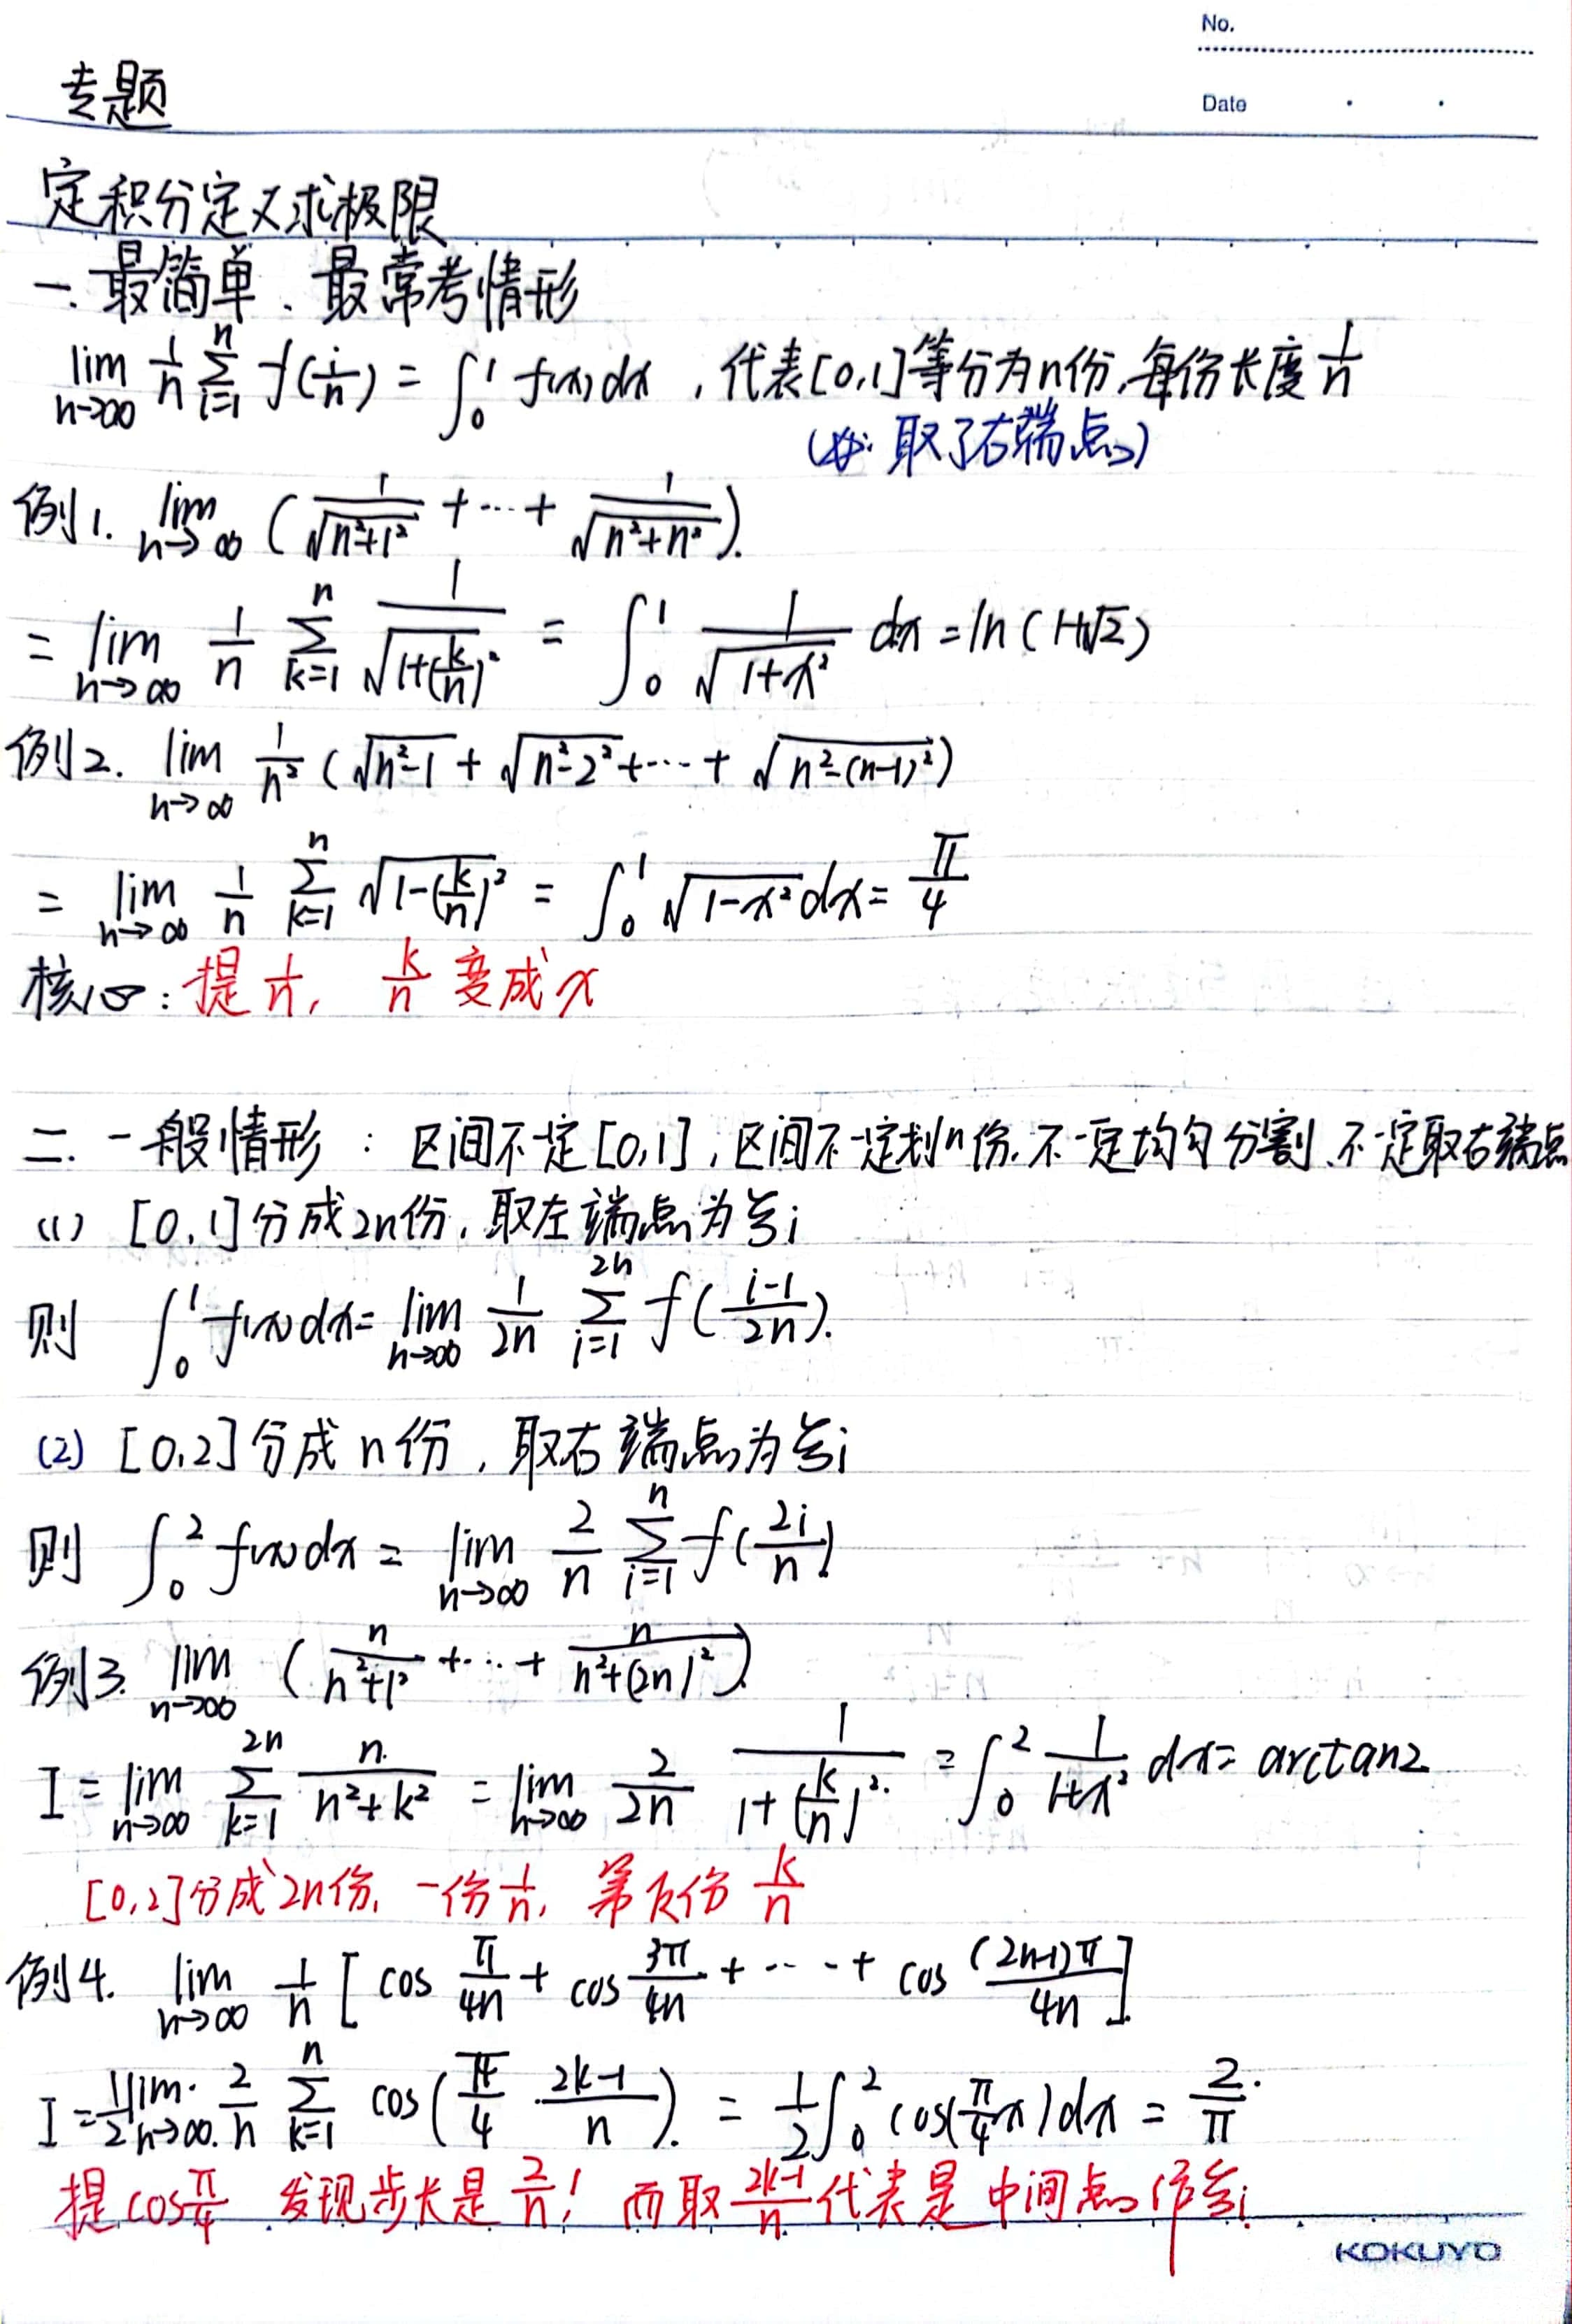 No.
Date
专题
定积分定义求极限
一. 最简单、最常考情形
lim n→∞ 1/n Σ_{i=1}^{n} f(i/n) = ∫_0^1 f(x)dx , 代表[0,1]等分为n份,每份长度 1/n
(取了右端点)
例1. lim n→∞ ( 1/√(n²+1²) + ··· + 1/√(n²+n²) ).
= lim n→∞ 1/n Σ_{k=1}^{n} 1/√(1+(k/n)²) = ∫_0^1 1/√(1+x²) dx = ln(1+√2)
例2. lim n→∞ 1/n² ( √(n²-1) + √(n²-2²) + ··· + √(n²-(n-1)²) )
= lim n→∞ 1/n Σ_{k=1}^{n} √(1-(k/n)²) = ∫_0^1 √(1-x²) dx = π/4
核心: 提 1/n, k/n 变成 x
二. 一般情形 : 区间不定[0,1], 区间不一定划n份, 不一定均匀分割、不一定取右端点
(1) [0,1]分成2n份, 取左端点为ξi
则 ∫_0^1 f(x)dx = lim n→∞ 1/2n Σ_{i=1}^{2n} f((i-1)/2n).
(2) [0,2]分成n份, 取右端点为ξi
则 ∫_0^2 f(x)dx = lim n→∞ 2/n Σ_{i=1}^{n} f(2i/n)
例3. lim n→∞ ( n/(n²+1²) + ··· + n/(n²+(2n)²) )
I = lim n→∞ Σ_{k=1}^{2n} n/(n²+k²) = lim n→∞ 2/2n 1/(1+(k/n)²) = ∫_0^2 1/(1+x²) dx = arctan2
[0,2]分成2n份, 一份 1/n, 第k份 k/n
例4. lim n→∞ 1/n [ cos π/4n + cos 3π/4n + ··· + cos (2n-1)π/4n ]
I = 1/2 lim n→∞ 2/n Σ_{k=1}^{n} cos( π/4 · (2k-1)/n ). = 1/2 ∫_0^2 cos(π/4 x)dx = 2/π
提 cos π/4 发现步长是 2/n! 而取 (2k-1)/n 代表是中间点作ξi
KOKUYO